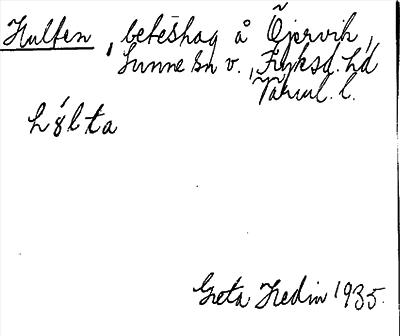 Hulten, beteshag å Öjervik,
Sunne sn v., Fryksd. hd
Värml. l.
hɤ́lta
Greta Hedin 1935.